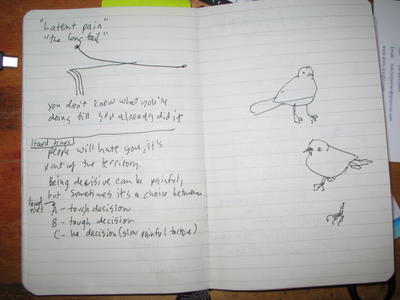 "Latent pain"
"the long tail"
you don't know what you're
doing till you already did it
Hard times
people will hate you, it's
part of the territory.
being decisive can be painful,
but sometimes it's a choice between
A - tough decision
B - tough decision
C - no decision (slow painful torture)